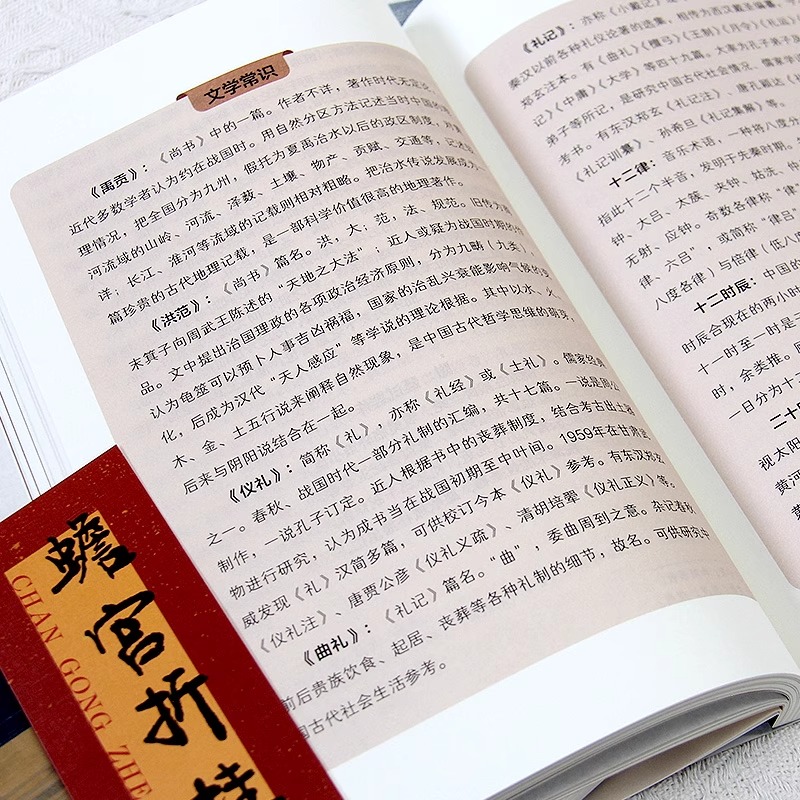 文学常识
《禹贡》：《尚书》中的一篇。作者不详，著作时代无定论，
近代多数学者认为约在战国时。用自然分区方法记述当时中国的
理情况，把全国分为九州，假托为夏禹治水以后的政区制度，
河流域的山岭、河流、泽薮、土壤、物产、贡赋、交通等，记述
详；长江、淮河等流域的记载则相对粗略。把治水传说发展成为
篇珍贵的古代地理记载，是一部科学价值很高的地理著作。
《洪范》：《尚书》篇名。洪，大；范，法、规范。旧传为
末箕子向周武王陈述的“天地之大法”；近人或疑为战国时期的
品。文中提出治国理政的各项政治经济原则，分为九畴（九类），
认为龟筮可以预卜人事吉凶祸福，国家的治乱兴衰能影响气候的变
化，后成为汉代“天人感应”等学说的理论根据。其中以水、火、
木、金、土五行说来阐释自然现象，是中国古代哲学思维的萌芽，
后来与阴阳说结合在一起。
《仪礼》：简称《礼》，亦称《礼经》或《士礼》。儒家经典
之一。春秋、战国时代一部分礼制的汇编，共十七篇。一说是周公
制作，一说孔子订定。近人根据书中的丧葬制度，结合考古出土器
物进行研究，认为成书当在战国初期至中叶间。1959年在甘肃武
威发现《礼》汉简多篇，可供校订今本《仪礼》参考。有东汉郑玄
《仪礼注》、唐贾公彦《仪礼义疏》、清胡培翚《仪礼正义》等。
《曲礼》：《礼记》篇名。“曲”，委曲周到之意。杂记春秋
前后贵族饮食、起居、丧葬等各种礼制的细节，故名。可供研究中
国古代社会生活参考。
《礼记》：亦称《小戴记》
秦汉以前各种礼仪论著的选集，相传为西汉戴圣编
郑玄注本。有《曲礼》《檀弓》《王制》《月令》《礼运》
记》《中庸》《大学》等四十九篇，大率为孔子弟子及
弟子等所记，是研究中国古代社会情况、儒家学
考书。有东汉郑玄《礼记注》、唐孔颖达《礼
《礼记训纂》、孙希旦《礼记集解》等。
十二律：音乐术语，一种将八度分
指此十二个半音，发明于先秦时期。
钟、大吕、太簇、夹钟、姑洗、仲
无射、应钟。奇数各律称“律
律、六吕”，或简称“律吕
八度各律）与倍律（低八
十二时辰：中国的
时辰合现在的两小时
十一时至一时是子
时，余类推。
一日分为十
二十
视太阳
黄河
蟾宫折桂
CHAN GONG ZHE